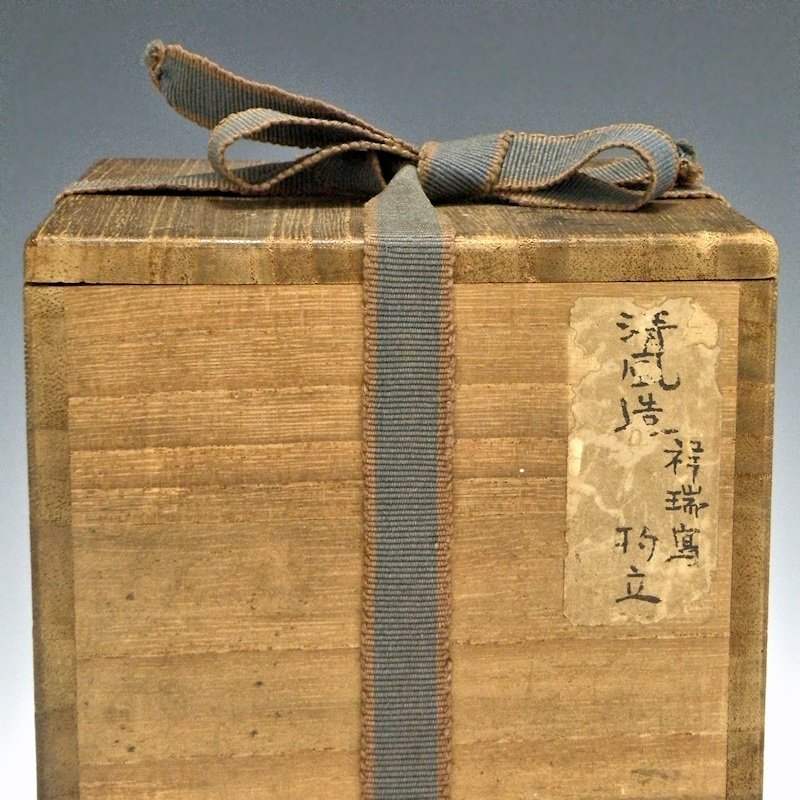 清風造
祥瑞寫
杓立